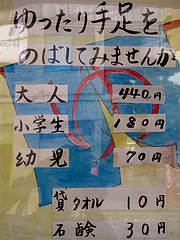 ゆったり手足を
のばしてみませんか
大人 440円
小学生 180円
幼児 70円
貸タオル 10円
石鹸 30円